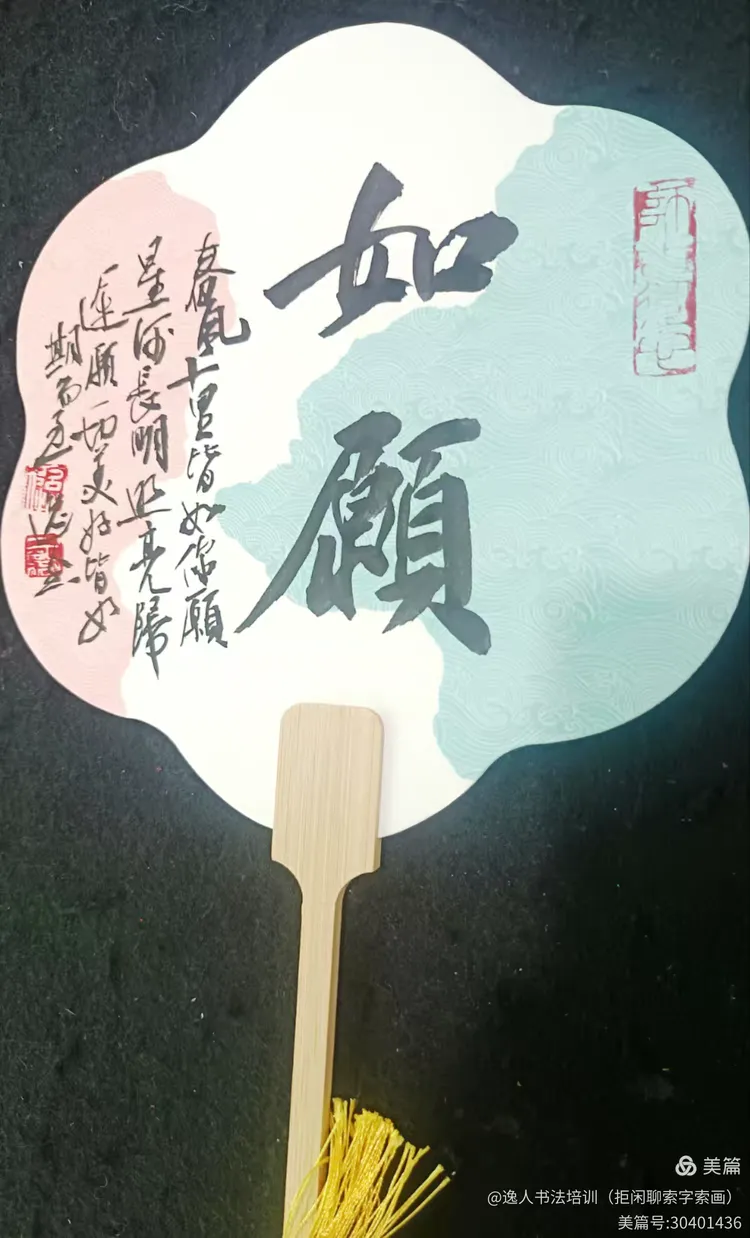 如願
春風十里皆如你願
星河長明照亮歸
途願一切美好皆如
期而至
美篇
@逸人书法培训（拒闲聊索字索画）
美篇号:30401436